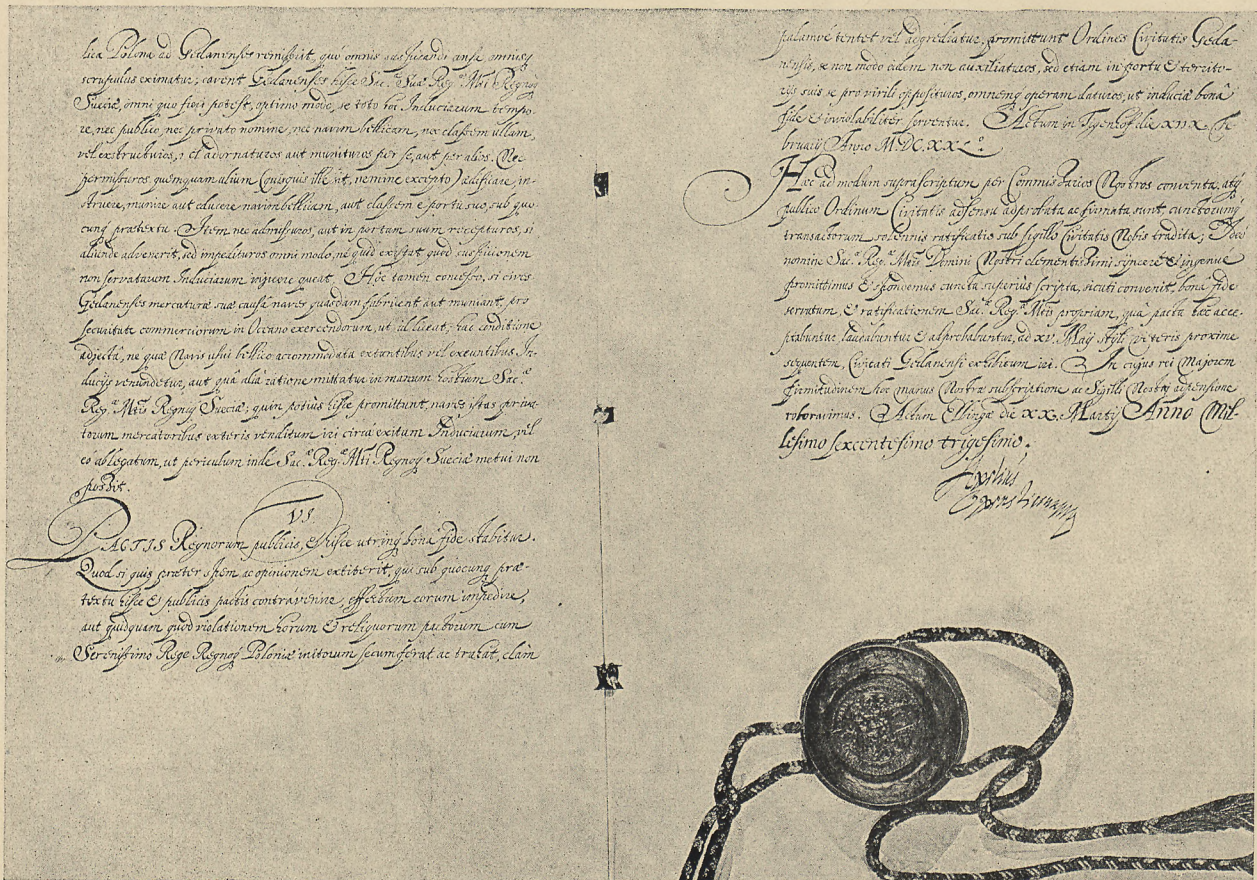 lica Polona ad Gedanenses remissit, quo omnis suspicandi ansa omnisq
scrupulus eximatur; cavent Gedanenses hisce Sac.æ Suæ Reg.æ Mti Regnoq
Sueciæ, omni quo fieri potest, optimo modo, se toto hoc Induciarum tempo-
re, nec publico, nec privato nomine, nec navim bellicam, nec classem ullam,
vel exstructuros, vel adornaturos aut munituros per se, aut per alios. Nec
permissuros quemquam alium (quisquis ille sit, nemine excepto) ædificare, in-
struere, munire aut educere navim bellicam, aut classem e portu suo, sub quo-
cunq prætextu. Item nec admissuros, aut in portum suum recepturos, si
aliunde advenerit, sed impedituros omni modo, ne quid existat, quod suspicionem
non servatarum Induciarum ingerere queat. Hoc tamen concesso, si cives
Gedanenses mercaturæ suæ causa naves quasdam fabricent aut muniant, pro
securitate commerciorum in Oceano exercendorum, ut id liceat; hac conditione
adjectâ, ne quæ Navis usui bellico accommodata extantibus vel exeuntibus In-
ducijs venundetur, aut quâ aliâ ratione mittatur in manum hostium Sac.æ
Reg.æ Mtis Regniq Sueciæ; quin potius hisce promittunt, naves istas priva-
torum mercatoribus exteris venditum iri circa exitum Induciarum, vel
eo ablegatum, ut periculum inde Sac.æ Reg.æ Mti Regnoq Sueciæ metui non
possit.
VI
PACTIS Regnorum publicis, & hisce utrinq bonâ fide stabitur.
Quod si quis præter spem ac opinionem extiterit, qui sub quocunq præ-
textu hisce & publicis pactis contravenire, effectum eorum impedire,
aut quidquam quod violationem horum & reliquorum pactorum cum
Serenissimo Rege Regnoq Poloniæ initorum secum ferat ac trahat, clam
palamve tentet vel adgrediatur, promittunt Ordines Civitatis Geda-
nensis, se non modo eidem non auxiliaturos, sed etiam in portu & territo-
rijs suis se pro virili opposituros, omnemq operam daturos, ut induciæ bonâ
fide & inviolabiliter serventur. Actum in Tigenhof die XIIX. Fe-
bruarij Anno M.DC.XXX.º
Hæc ad modum suprascriptum per Commissarios Nostros conventa, atq
publico Ordinum Civitatis adsensu adprobata ac firmata sunt, cunctorumq
transactorum solennis ratificatio sub sigillo Civitatis Nobis tradita; Ideo
nomine Sac.æ Reg.æ Mtis Domini Nostri clementissimi sincere & ingenue
promittimus & spondemus cuncta superius scripta, sicuti convenit, bona fide
servatum, & ratificationem Sac.æ Reg.æ Mtis propriam, quâ pacta hæc acce-
ptabuntur, laudabuntur & adprobabuntur, ad XV. Maij styli veteris proxime
sequentem, Civitati Gedanensi exhibitum iri. In cujus rei Majorem
firmitudinem hoc manus Nostræ subscriptione ac Sigilli Nostri adpensione
roboravimus. Actum Elbingæ die XX. Martij Anno Mil-
lesimo sexcentesimo trigesimo.
Axelius
Oxenstierna